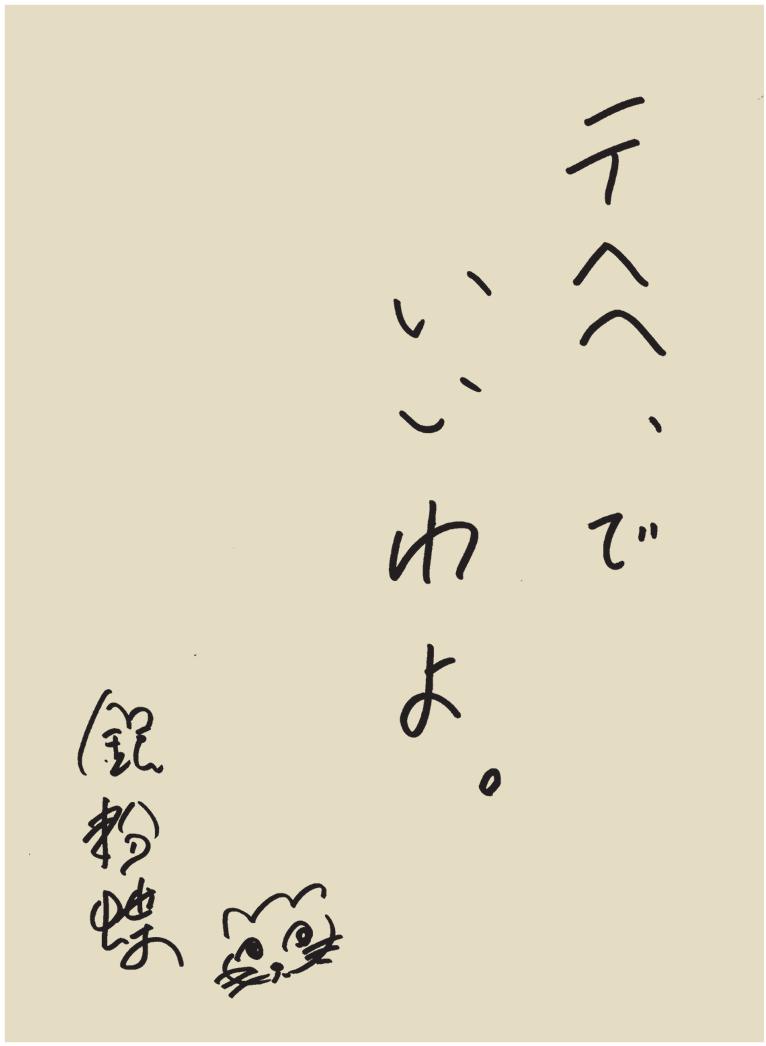 テヘヘ、で
いいわよ。
銀粉蝶